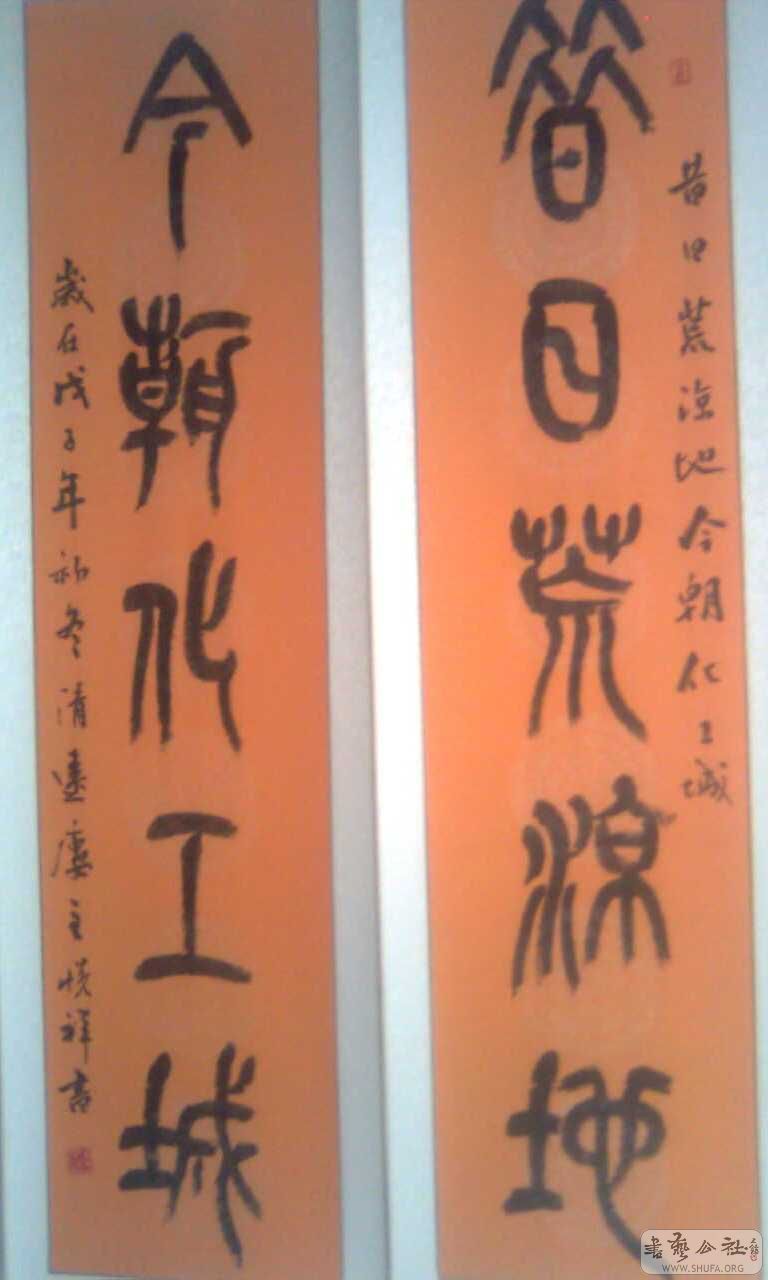 昔日荒涼地今朝化工城
昔日荒涼地
今朝化工城
歲在戊子年初冬清遠廔主悅祥書
書藝公社
WWW.SHUFA.ORG